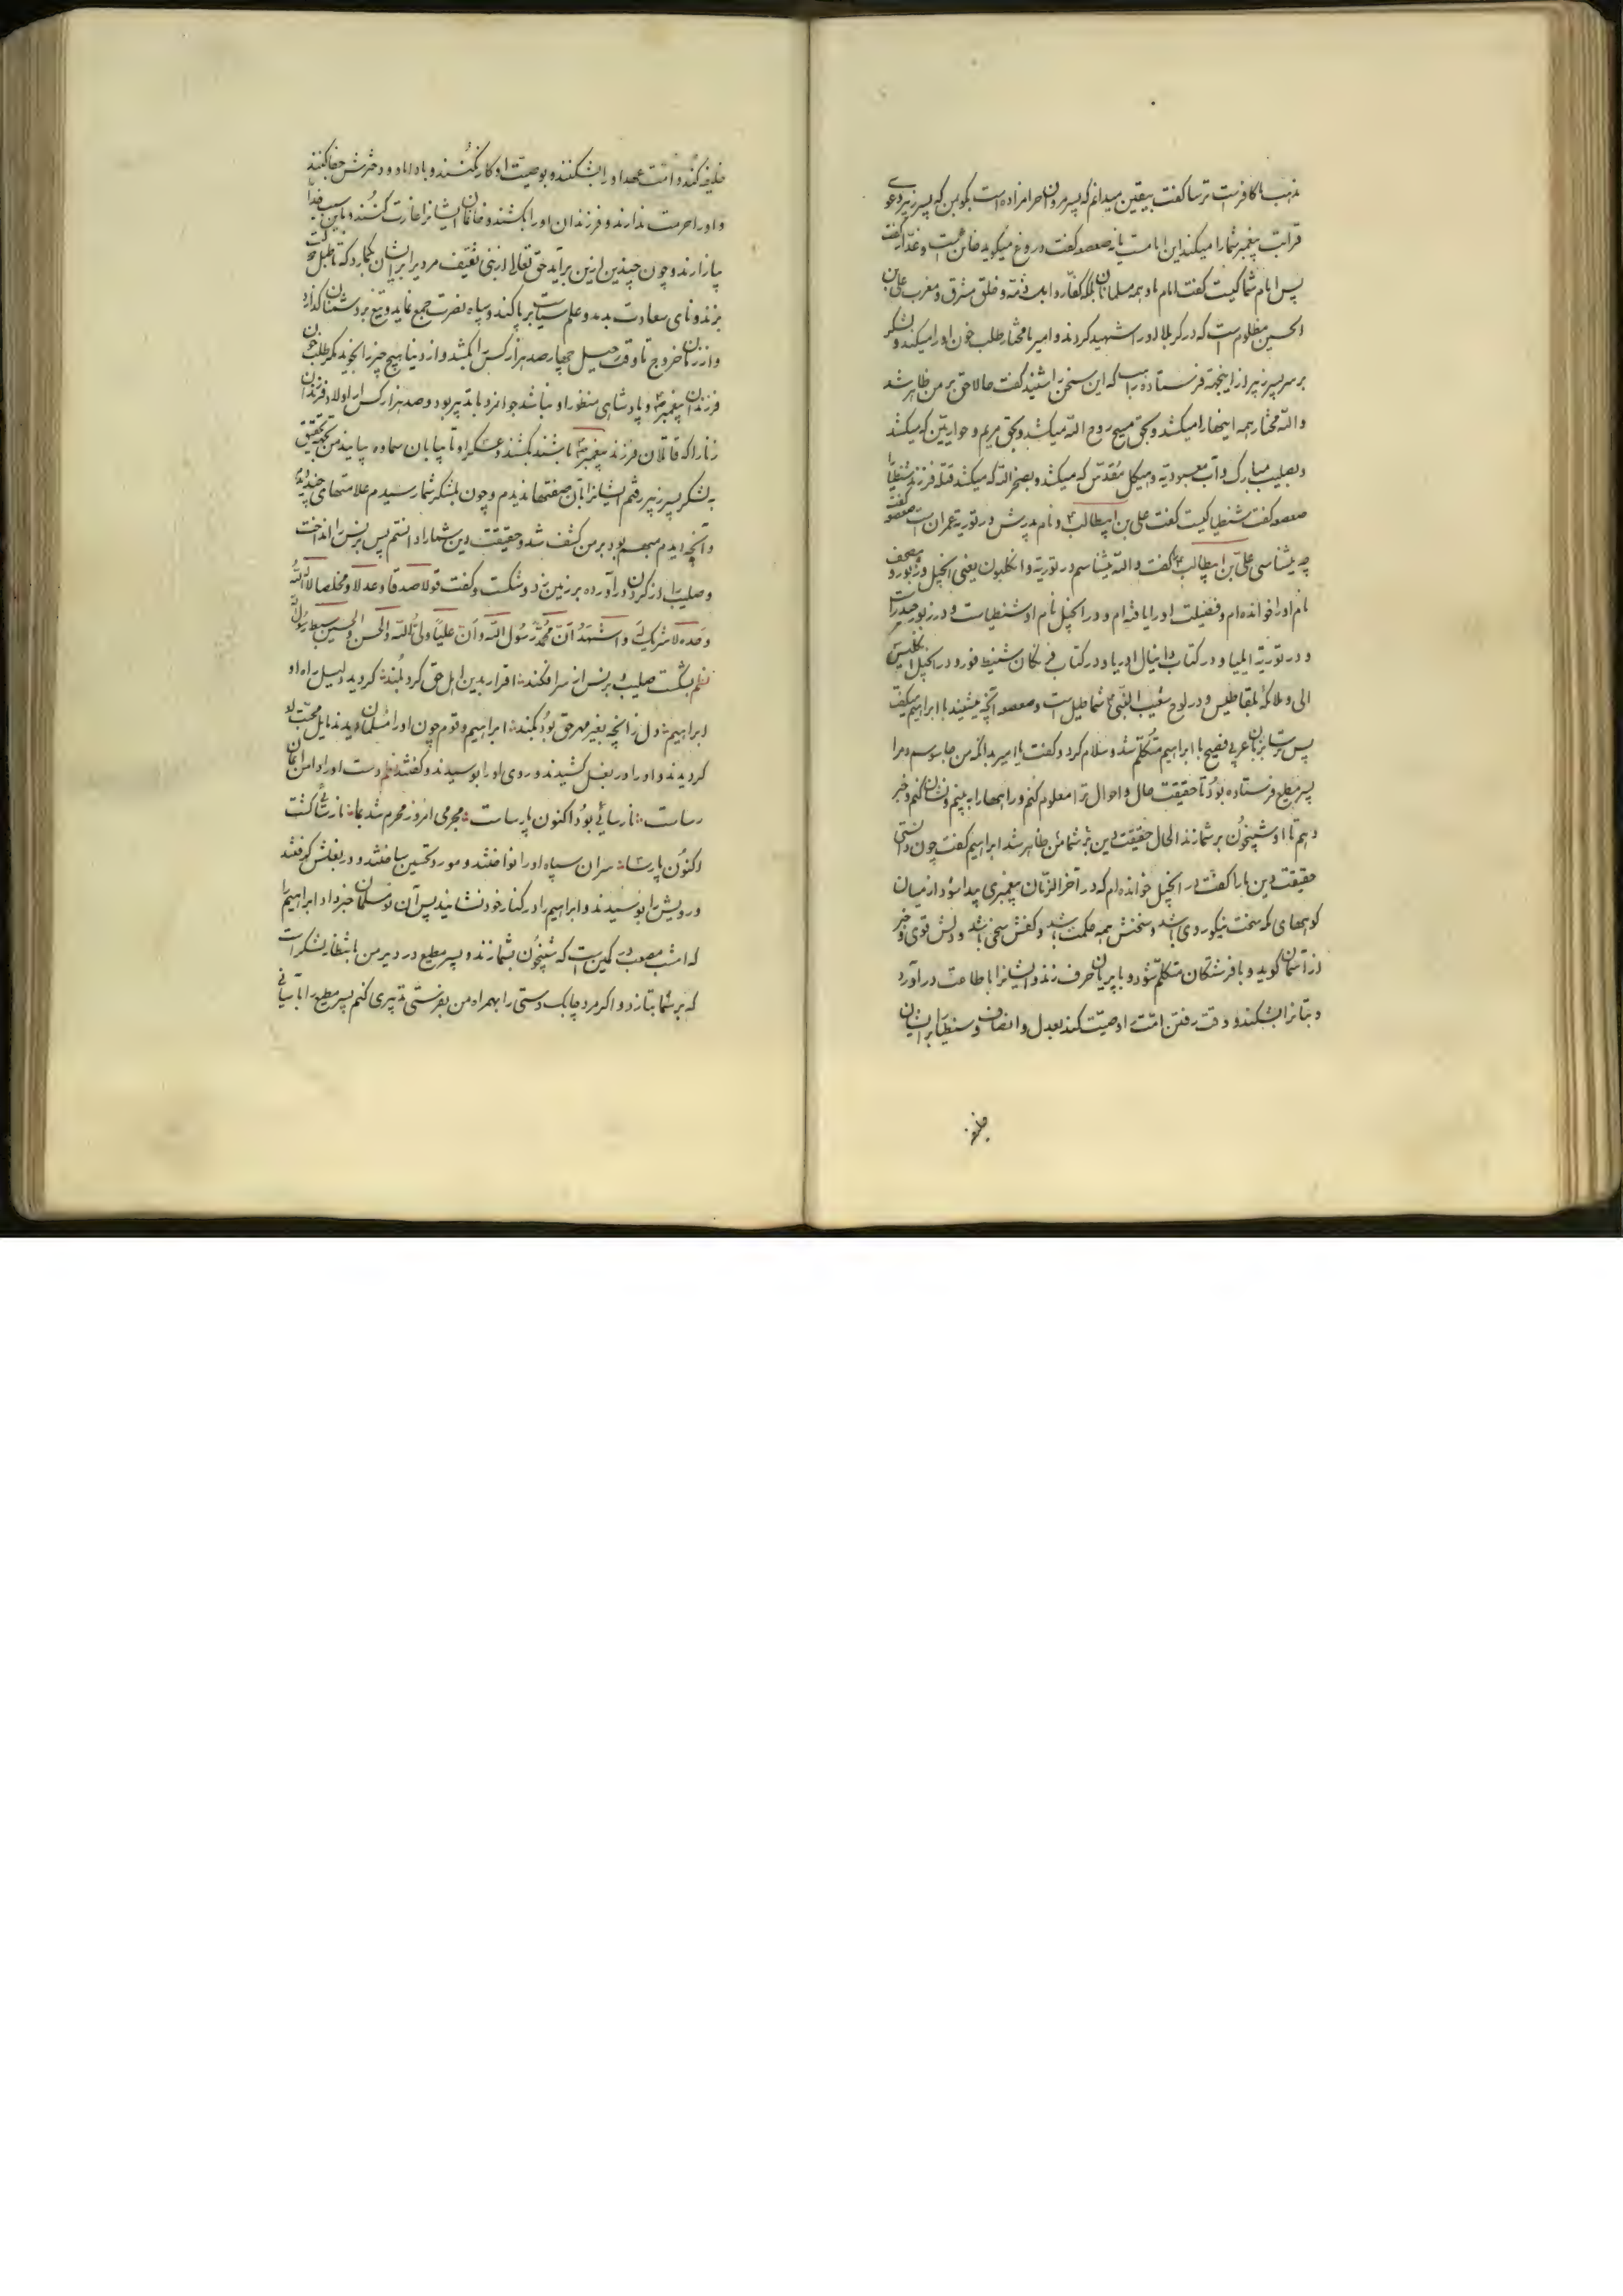 مذهب ما کافرست ترسا گفت بیقین میدانم که پسر مروان حرامزاده است بگو بمن که پسر زبیر دعوی
قرابت پیغمبر شما را میکند این امامست یا نه صعصعه گفت دروغ میگوید خاین است و غدار گفت
پس امام شما کیست گفت امام ما و همه مسلمانان بلکه کفار و اهل ذمه و خلق مشرق و مغرب علی بن
الحسین مظلوم است که در کربلا او را شهید کردند و امیر ما مختار طلب خون او را میکند و لشکر
بر سر پسر زبیر از اینجهة فرستاده راهب که این سخن را شنید گفت حالا حق بر من ظاهر شد
والله مختار همه اینها را میکشد و بحق مسیح روح الله میکشد و بحق مریم و حواریین که میکشد
و بصلیب مبارک و آب معبودیه و هیکل مقدس که میکشد و بصخر الله که میکشد قتله فرزند شنطیا را
صعصعه گفت شنطیا کیست گفت علی بن ابیطالب و نام پدرش در توریة عمران است صعصعه گفت
چه میشناسی علی بن ابیطالب را گفت والله میشناسم در توریة و انکلیون یعنی انجیل و زبور و صحف
نام او را خوانده ام و فضیلت او را یافته ام و در انجیل نام او شنطیاست و در زبور حیدر است
و در توریة ایلیا و در کتاب دانیال اوریا و در کتاب
الی و ملائکه بلقاطلیس و در لوح شعیب النبی شماطیل است و صعصعه آنچه میشنید با ابراهیم میگفت
پس ترسا بزبان عربی فصیح با ابراهیم متکلم شد و سلام کرد و گفت یا امیر بدانکه من جاسوسم و مرا
پسر مطیع فرستاده بود تا حقیقت حال و احوال ترا معلوم کنم و راهها را به بینم و نشان کنم و خبر
دهم تا او شبیخون بر شما زند الحال حقیقت دین شما بر من ظاهر شد ابراهیم گفت چون دانستی
حقیقت دین ما را گفت در انجیل خوانده ام که در آخر الزمان پیغمبری پیدا شود از میان
کوههای مکه سخت نیکو روی باشد و سخنش همه حکمت باشد و کفش سخی باشد و دلش قوی و خبر
از آسمان گوید و با فرشتگان متکلم شود و با پریان حرف زند و ایشانرا باطاعت در آورد
و بتانرا بشکند و وقت رفتن امت را وصیت کند بعدل و انصاف و شنطیا را بر ایشان
خلیفه
خلیفه کند و امت عهد او را بشکنند و بوصیت او کار نکنند و با داماد و دخترش جفا کنند
و او را حرمت ندارند و فرزندان او را بکشند و خانمان ایشانرا غارت کنند و باین سبب خدا را
بیازارند و چون چندین ازین برآید حق تعالی از بنی ثقیف مردیرا بر ایشان گمارد که تا طبل
بزند و نای سعادت بدمد و علم سیاست برپا کند و سپاه نصرت جمع نماید و تیغ بر دشمنان گذارد
و از زمان خروج تا وقت رحیل چهار صد هزار کس را بکشد و از دنیا هیچ چیز را نجوید مگر طلب خون
فرزندان پیغمبر و پادشاهی منظور او نباشد جوانمرد با تدبیر بود و صد هزار کس از اولاد و فرزندان
زنا را که قاتلان فرزند پیغمبر باشند بکشند و عسکر او تا بیابان سماوه بیایند من بجهة تحقیق
به لشکر پسر زبیر رفتم ایشانرا بآن صفتها ندیدم و چون بلشکر شما رسیدم علامتهای چند دیدم
و آنچه دیدم مبهم بود بر من کشف شد و حقیقت دین شما را دانستم پس برنس را انداخت
و صلیب را از گردن درآورده بر زمین زد و شکست و گفت قولا صدقا و عدلا و مخلصا لا اله الا الله
وحده لا شریک له و اشهد ان محمد رسول الله و ان علیا ولی الله و الحسن و الحسین سبط رسول الله
نظم بشکست صلیب و برنس از سر افکند اقرار بدین اهل حق کرد بلند گردید دلیل راه او
ابراهیم دل ز آنچه بغیر مهر حق بود بکند ابراهیم و قوم چون او را مسلمان دیدند مایل محبت او
گردیدند و او را در بغل کشیدند و روی او را بوسیدند و گفتند نظم دست او را دامن ایمان
رساست نارسائی بود اکنون پارساست مجرمی امروز محرم شد بما نارسائی گشت
اکنون پارسا سران سپاه او را نواختند و مورد تحسین ساختند و در بغلش گرفتند
و رویش را بوسیدند و ابراهیم را در کنار خود نشانید پس آن نو مسلمان خبر داد ابراهیم را
که امشب مصعب در کمین است که شبیخون بشما زند و پسر مطیع در دیر من بانتظار لشکر است
که بر شما بتازد و اگر مرد چابک دستی را بهمراه من بفرستی تدبیری کنم پسر مطیع را باسانی